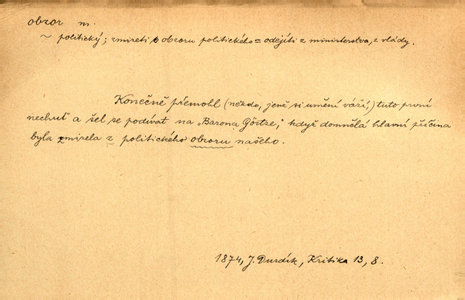 obzor m.
~ politický; zmizeti s obzoru politického = odejíti z ministerstva, z vlády.
Konečně přemohl (někdo, jenž si umění váží,) tuto první
nechuť a šel se podívat na „Barona Görtze," když domnělá hlavní příčina
byla zmizela z politického obzoru našeho.
1874, J. Durdík, Kritika 13, 8.